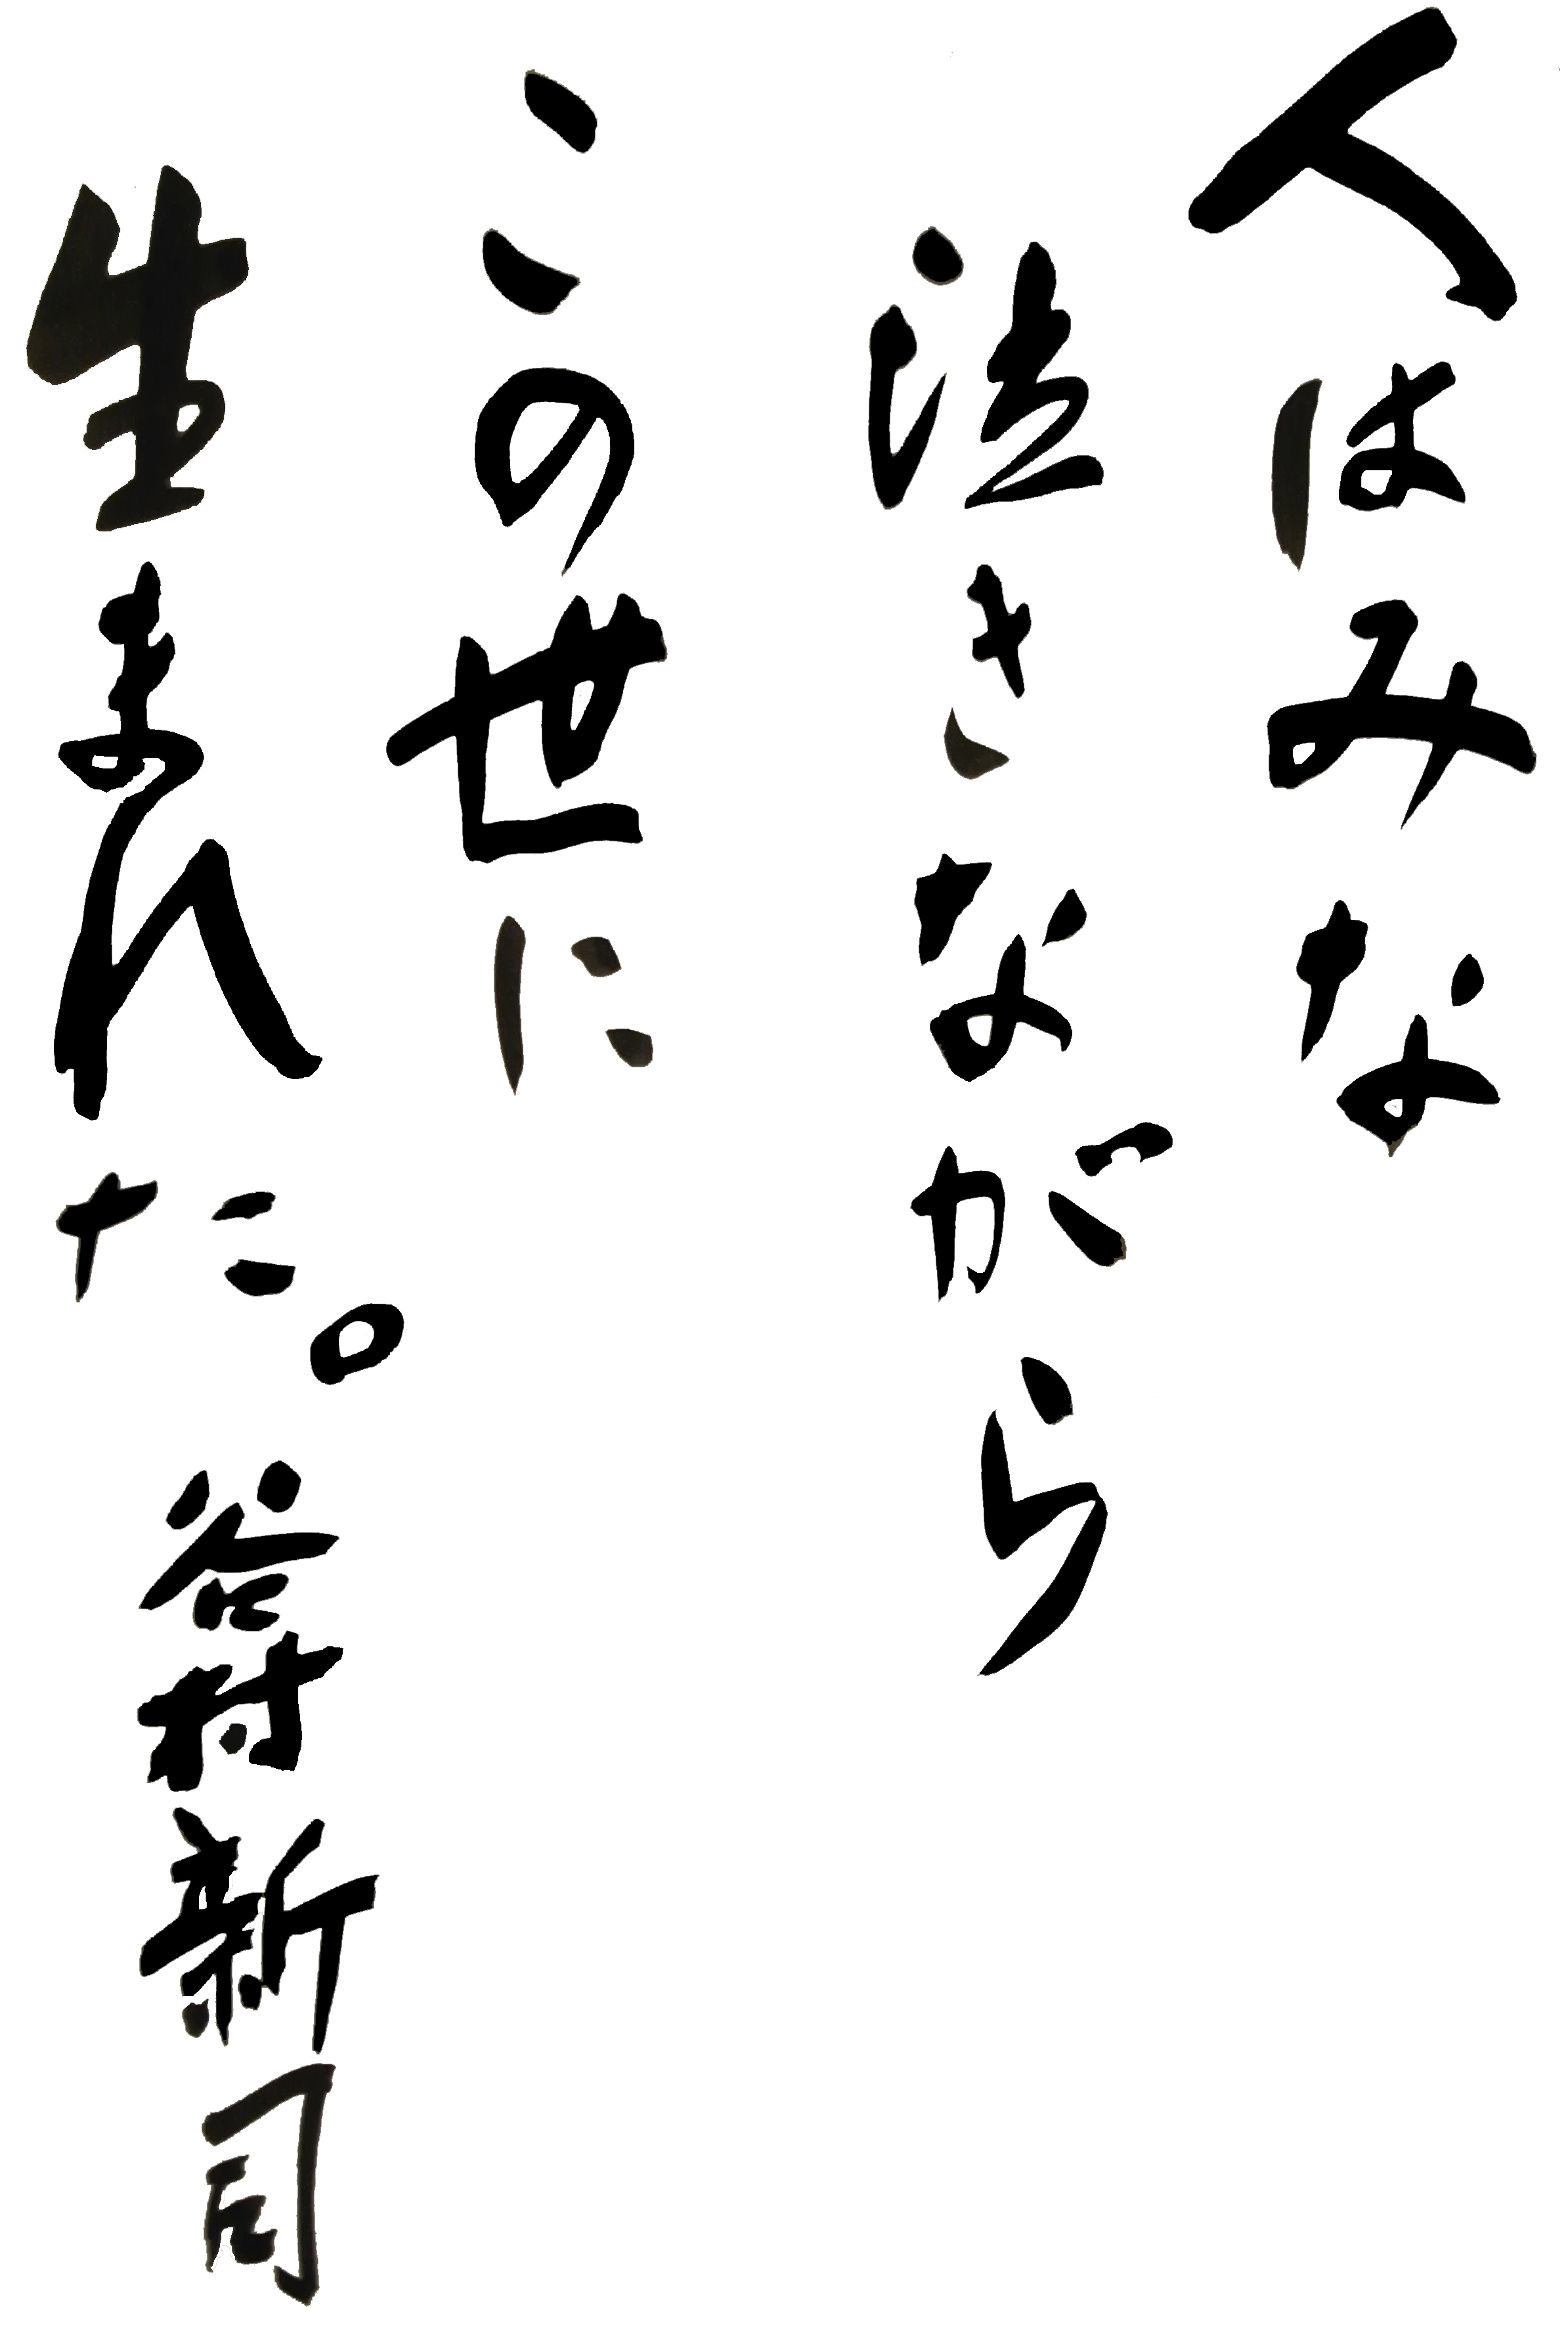 人はみな
泣きながら
この世に
生まれた。
谷村新司